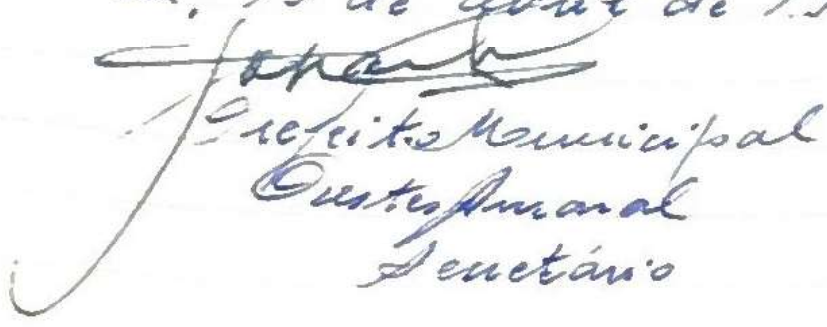 de abril de
Prefeito Municipal
Orestes Amaral
Secretário